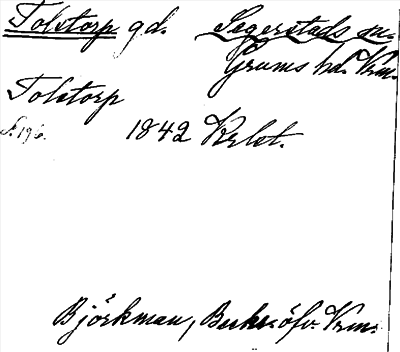 Tolstorp gd. Segerstads sn.
Grums hd. Vrm.
Tolstorp
S. 196. 1842 Krlst.
Björkman, Beskr. öfv. Vrm.